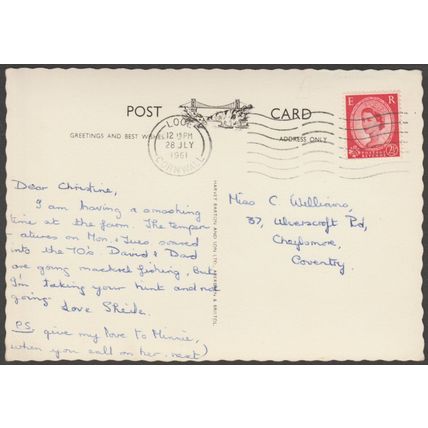 POST CARD
GREETINGS AND BEST WISHES
ADDRESS ONLY
LOOE
12 15 PM
28 JLY
1961
CORNWALL
E R
POSTAGE REVENUE
2½D
Dear Christine,
I am having a smashing
time at the farm. The temper-
atures on Mon & Tues soared
into the 70's. David & Dad
are going mackerel fishing, but
I'm taking your hint and not
going. Love Sheila.
P.S. give my love to Minnie,
(when you call on her next)
HARVEY BARTON AND SON LTD. BRISTOL
Miss C Williams,
37, Ulverscroft Rd,
Cheylesmore,
Coventry.